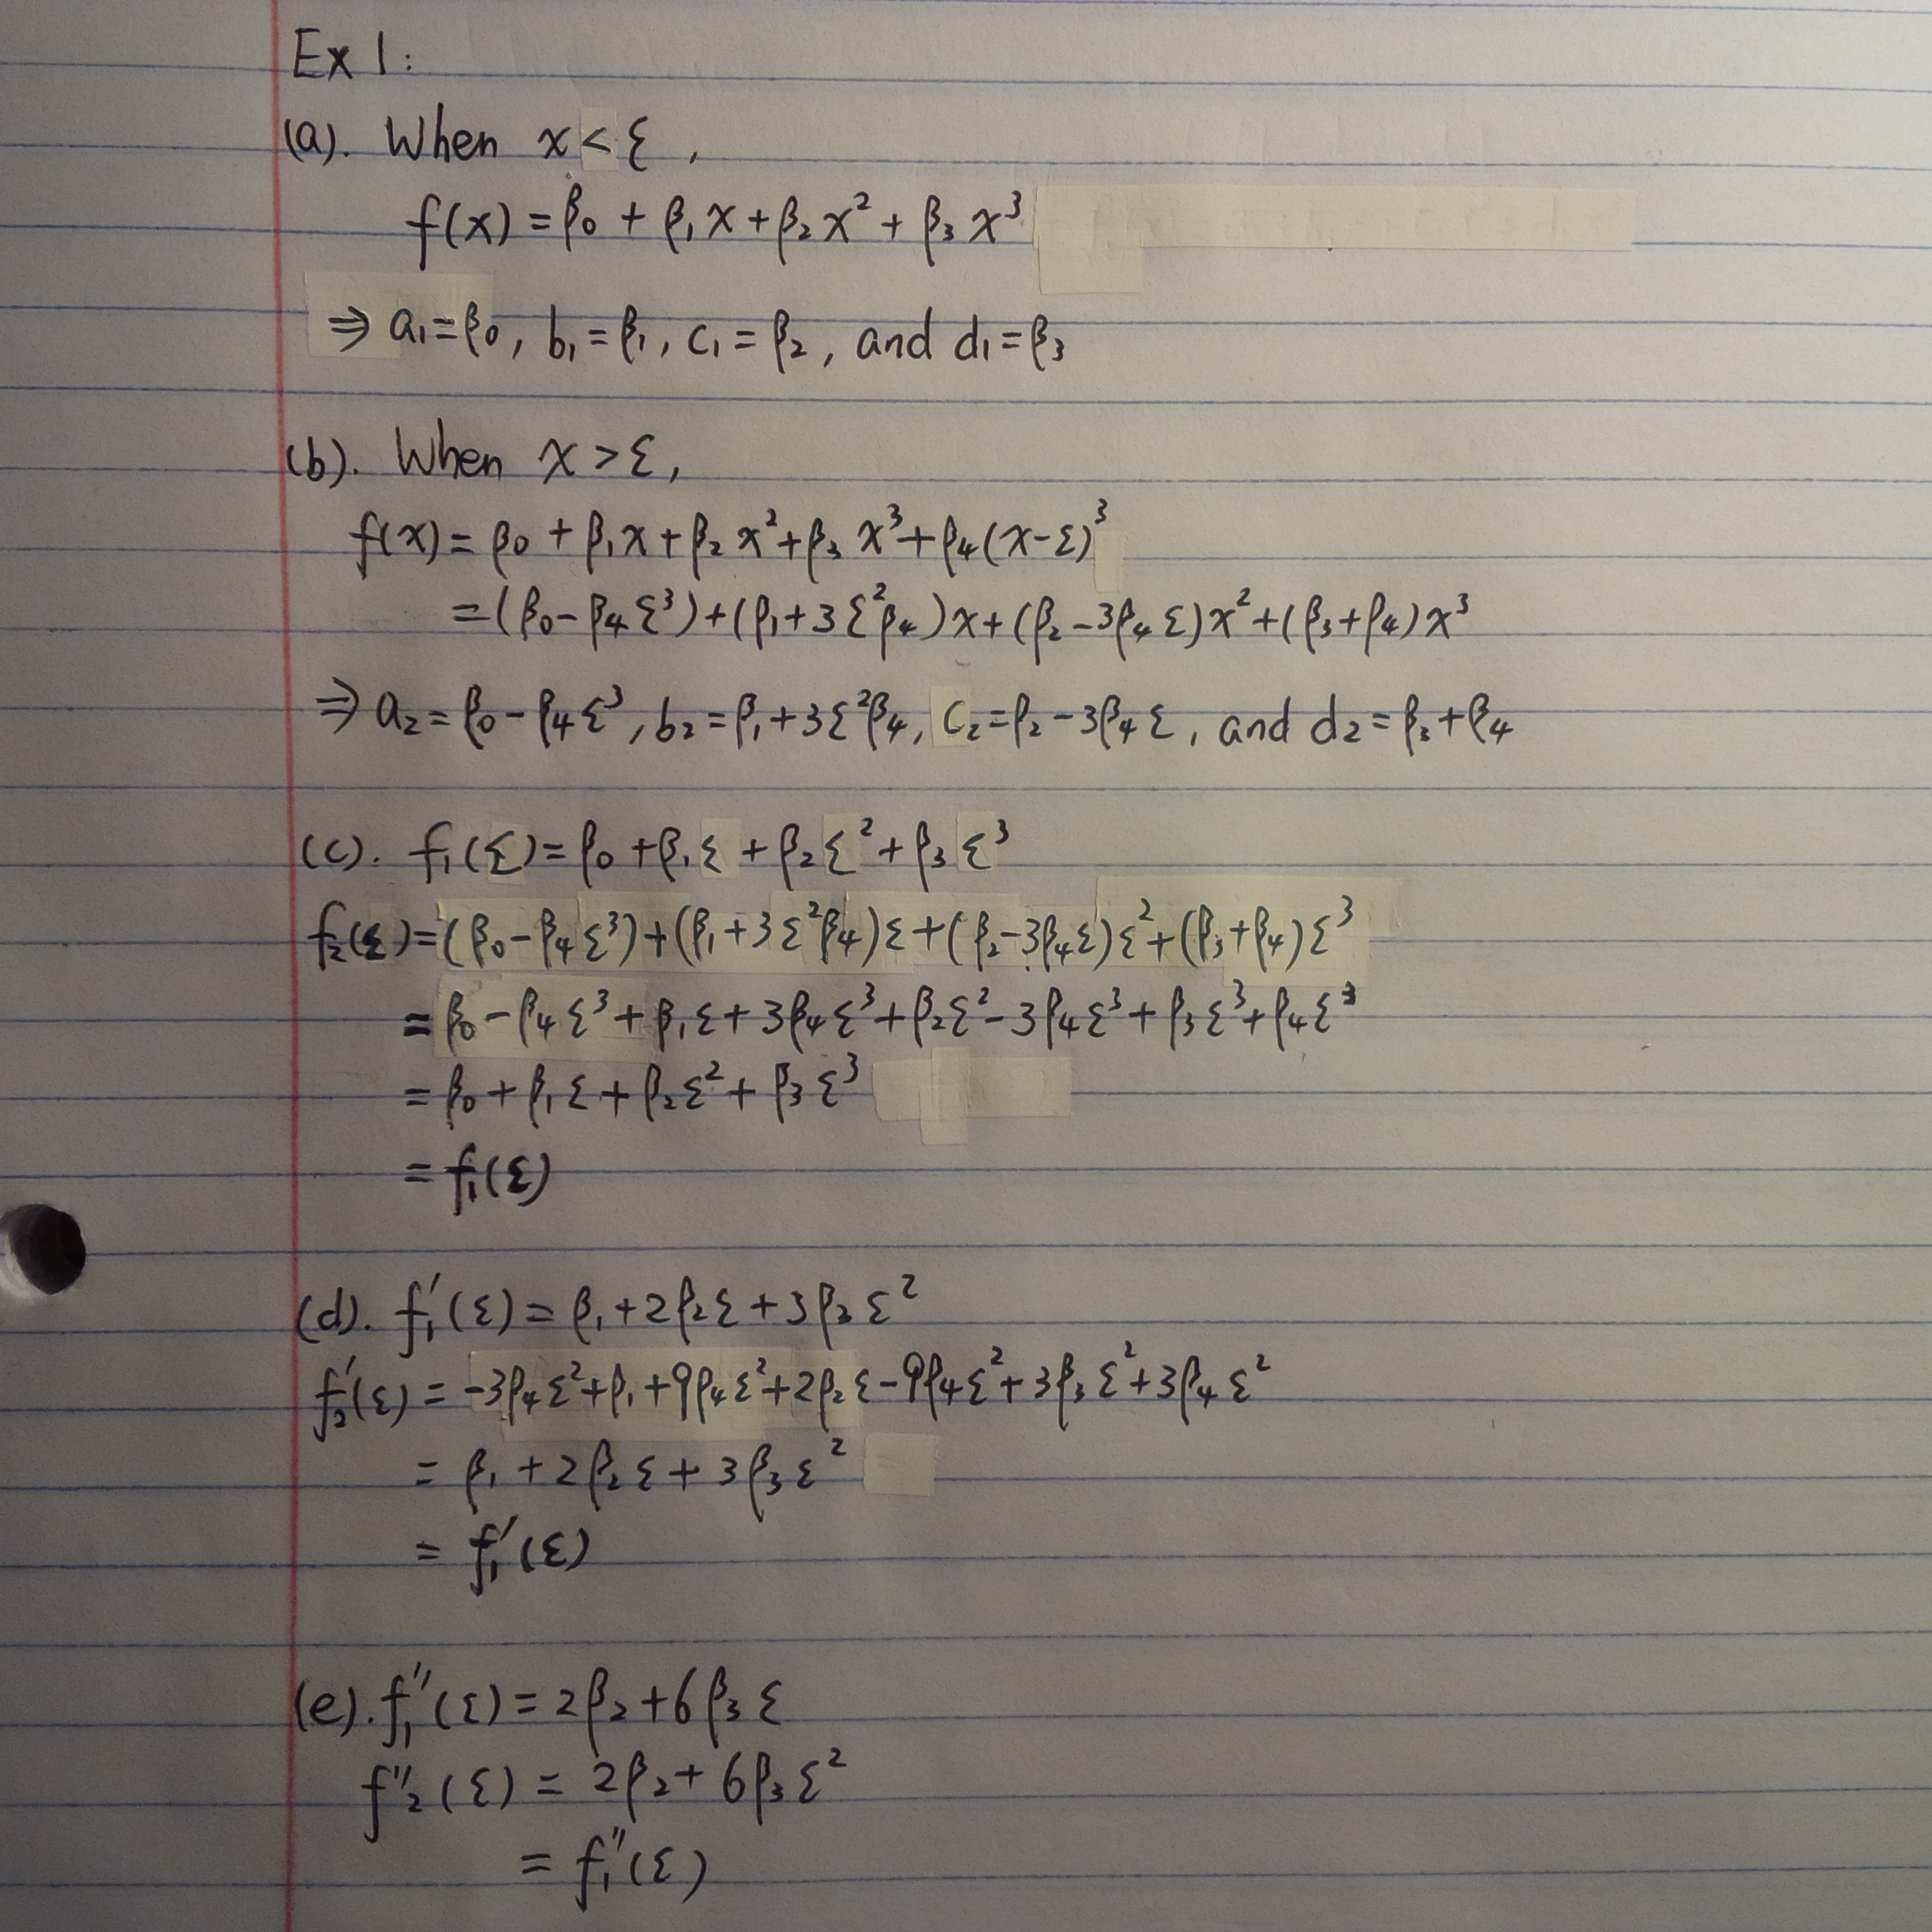 Ex 1:
(a). When x < ξ ,
f(x) = β₀ + β₁x + β₂x² + β₃x³
⇒ a₁=β₀, b₁=β₁, c₁=β₂, and d₁=β₃
(b). When x > ξ,
f(x) = β₀ + β₁x + β₂x² + β₃x³ + β₄(x-ξ)³
=(β₀-β₄ξ³)+(β₁+3ξ²β₄)x+(β₂-3β₄ξ)x²+(β₃+β₄)x³
⇒ a₂=β₀-β₄ξ³, b₂=β₁+3ξ²β₄, c₂=β₂-3β₄ξ, and d₂=β₃+β₄
(c). f₁(ξ)=β₀+β₁ξ+β₂ξ²+β₃ξ³
f₂(ξ)=(β₀-β₄ξ³)+(β₁+3ξ²β₄)ξ+(β₂-3β₄ξ)ξ²+(β₃+β₄)ξ³
= β₀-β₄ξ³+β₁ξ+3β₄ξ³+β₂ξ²-3β₄ξ³+β₃ξ³+β₄ξ³
= β₀+β₁ξ+β₂ξ²+β₃ξ³
= f₁(ξ)
(d). f₁′(ξ)=β₁+2β₂ξ+3β₃ξ²
f₂′(ξ) = -3β₄ξ²+β₁+9β₄ξ²+2β₂ξ-9β₄ξ²+3β₃ξ²+3β₄ξ²
= β₁+2β₂ξ+3β₃ξ²
= f₁′(ξ)
(e). f₁″(ξ)=2β₂+6β₃ξ
f″₂(ξ) = 2β₂+6β₃ξ²
= f₁″(ξ)